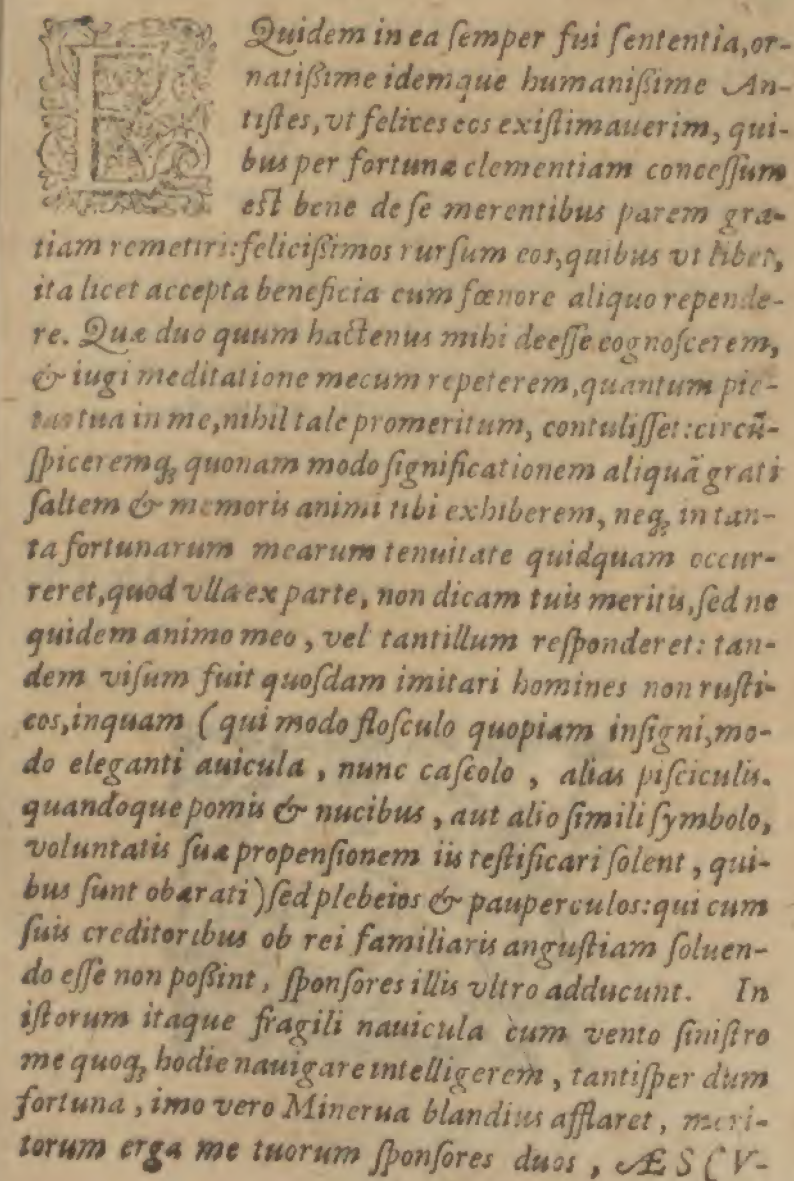 EQuidem in ea ſemper fui ſententia, or-
natißime idemque humanißime An-
tiſtes, vt felices eos exiſtimauerim, qui-
bus per fortunæ clementiam conceſſum
eſt bene de ſe merentibus parem gra-
tiam remetiri: felicißimos rurſum eos, quibus vt libet,
ita licet accepta beneficia cum fœnore aliquo repende-
re. Quæ duo quum hactenus mihi deeſſe cognoſcerem,
& iugi meditatione mecum repeterem, quantum pie-
tas tua in me, nihil tale promeritum, contuliſſet: circũ-
ſpiceremq; quonam modo ſignificationem aliquã grati
ſaltem & memoris animi tibi exhiberem, neq; in tan-
ta fortunarum mearum tenuitate quidquam occur-
reret, quod vlla ex parte, non dicam tuis meritis, ſed ne
quidem animo meo, vel tantillum reſponderet: tan-
dem viſum fuit quoſdam imitari homines non ruſti-
cos, inquam (qui modo floſculo quopiam inſigni, mo-
do eleganti auicula, nunc caſeolo, alias piſciculis.
quandoque pomis & nucibus, aut alio ſimili ſymbolo,
voluntatis ſuæ propenſionem iis teſtificari ſolent, qui-
bus ſunt obærati) ſed plebeios & pauperculos: qui cum
ſuis creditoribus ob rei familiaris anguſtiam ſoluen-
do eſſe non poßint, ſponſores illis vltro adducunt. In
iſtorum itaque fragili nauicula cum vento ſiniſtro
me quoq; hodie nauigare intelligerem, tantiſper dum
fortuna, imo vero Minerua blandius afflaret, meri-
torum erga me tuorum ſponſores duos, ÆSCV-